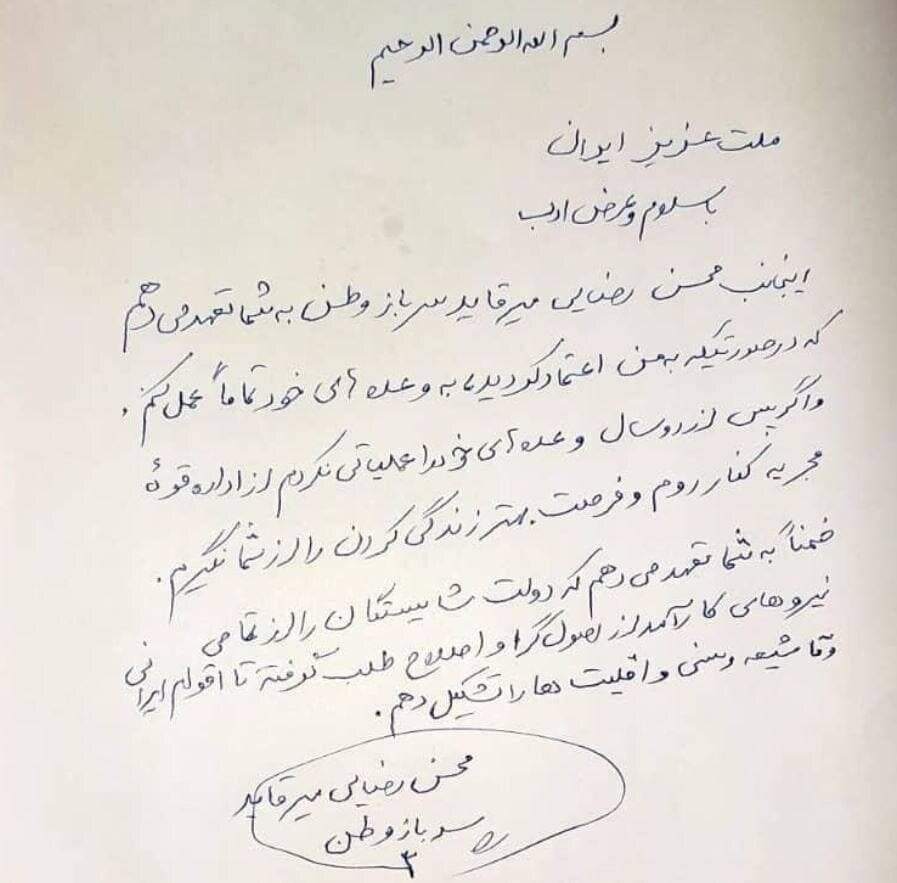 بسم الله الرحمن الرحیم
ملت عزیز ایران
با سلام و عرض ادب
اینجانب محسن رضایی میرقاید سرباز وطن به شما تعهد می دهم
که در صورتیکه به من اعتماد کردید، به وعده های خود تماماً عمل کنم.
و اگر پس از دو سال وعده های خود را عملیاتی نکردم از اداره قوهٔ
مجریه کنار روم و فرصت بهتر زندگی کردن را از شما نگیرم.
ضمناً به شما تعهد می دهم که دولت شایستگان را از تمامی
نیروهای کارآمد از اصول گرا و اصلاح طلب گرفته تا اقوام ایرانی
و تا شیعه و سنی و اقلیت ها را تشکیل دهم.
محسن رضایی میرقاید
سرباز وطن
۳